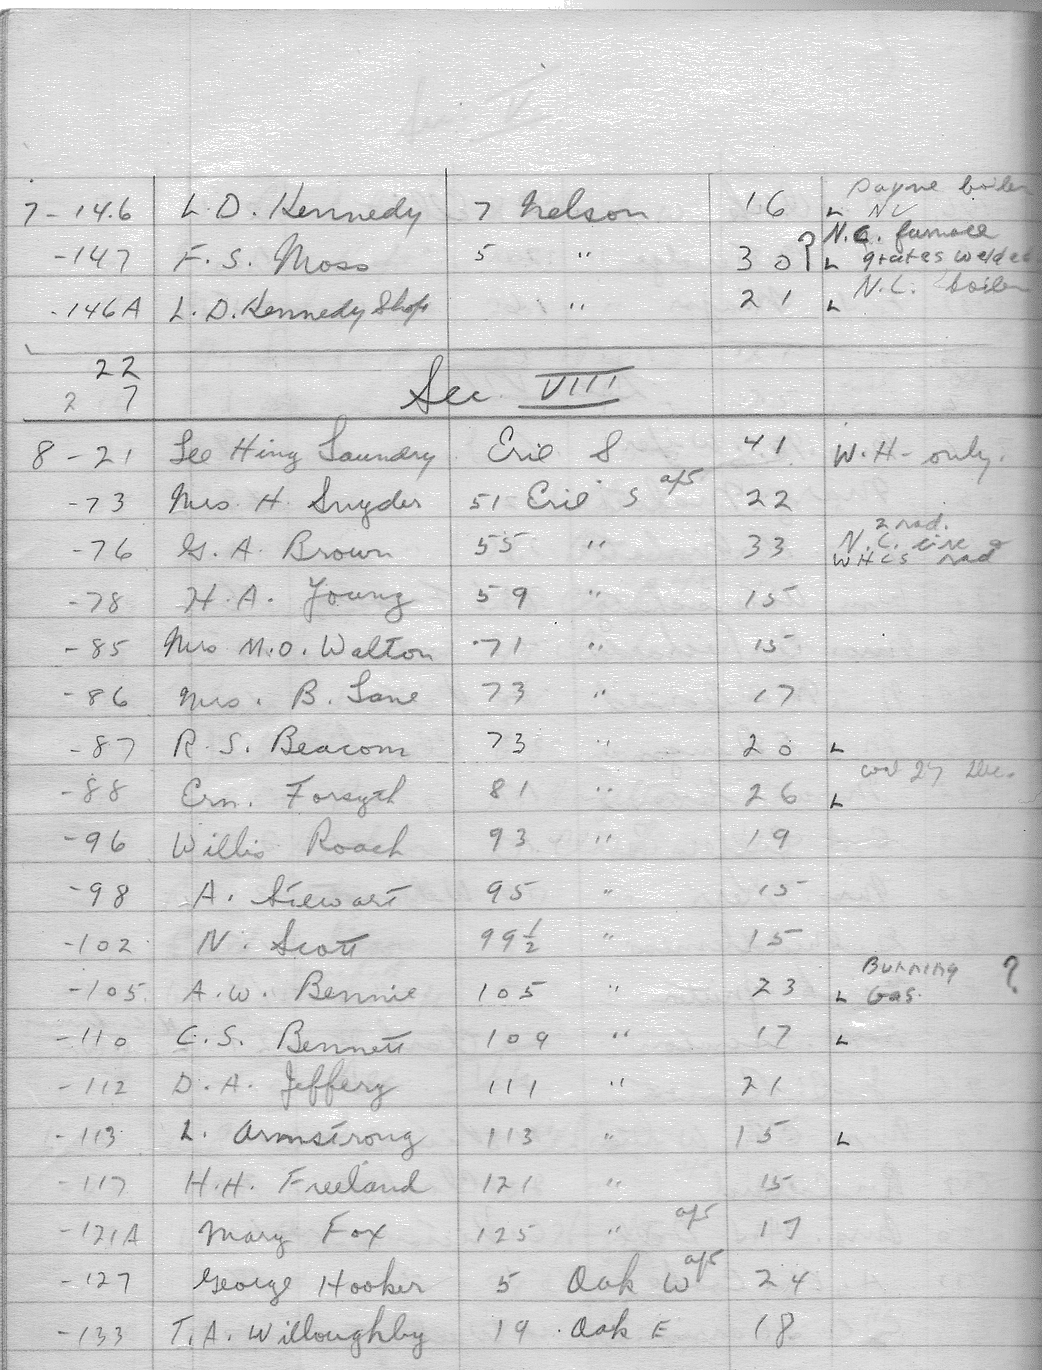 Payne boiler
7-146 L.D. Kennedy 7 Nelson 16 L NC
N.C. furnace
-147 F.S. Moss 5 " 30? L grates welded
N.C. boiler
-146A L.D. Kennedy Shop " 21 L
22
2 7 Sec VIII
8-21 Lee Hing Laundry Erie S 41 W.H- only.
-73 Mrs H. Snyder 51 Erie S a/5 22
2 rad.
-76 G.A. Brown 55 " 33 N.C.
WHCS rad
-78 H.A. Young 59 " 15
-85 Mrs M.O. Walton 71 " 15
-86 Mrs. B. Lane 73 " 17
-87 R.S. Beacom 73 " 20 L
27 Dec.
-88 Ern. Forsyth 81 " 26 L
-96 Willis Roach 93 " 19
-98 A. Stewart 95 " 15
-102 N. Scott 99½ " 15
Burning ?
-105 A.W. Bennie 105 " 23 L Gas.
-110 C.S. Bennett 109 " 17 L
-112 D.A. Jeffery 111 " 21
-113 L. Armstrong 113 " 15 L
-117 H.H. Freeland 121 " 15
-121A Mary Fox 125 " a/5 17
-127 George Hooker 5 Oak W a/5 24
-133 T.A. Willoughby 19 Oak E 18